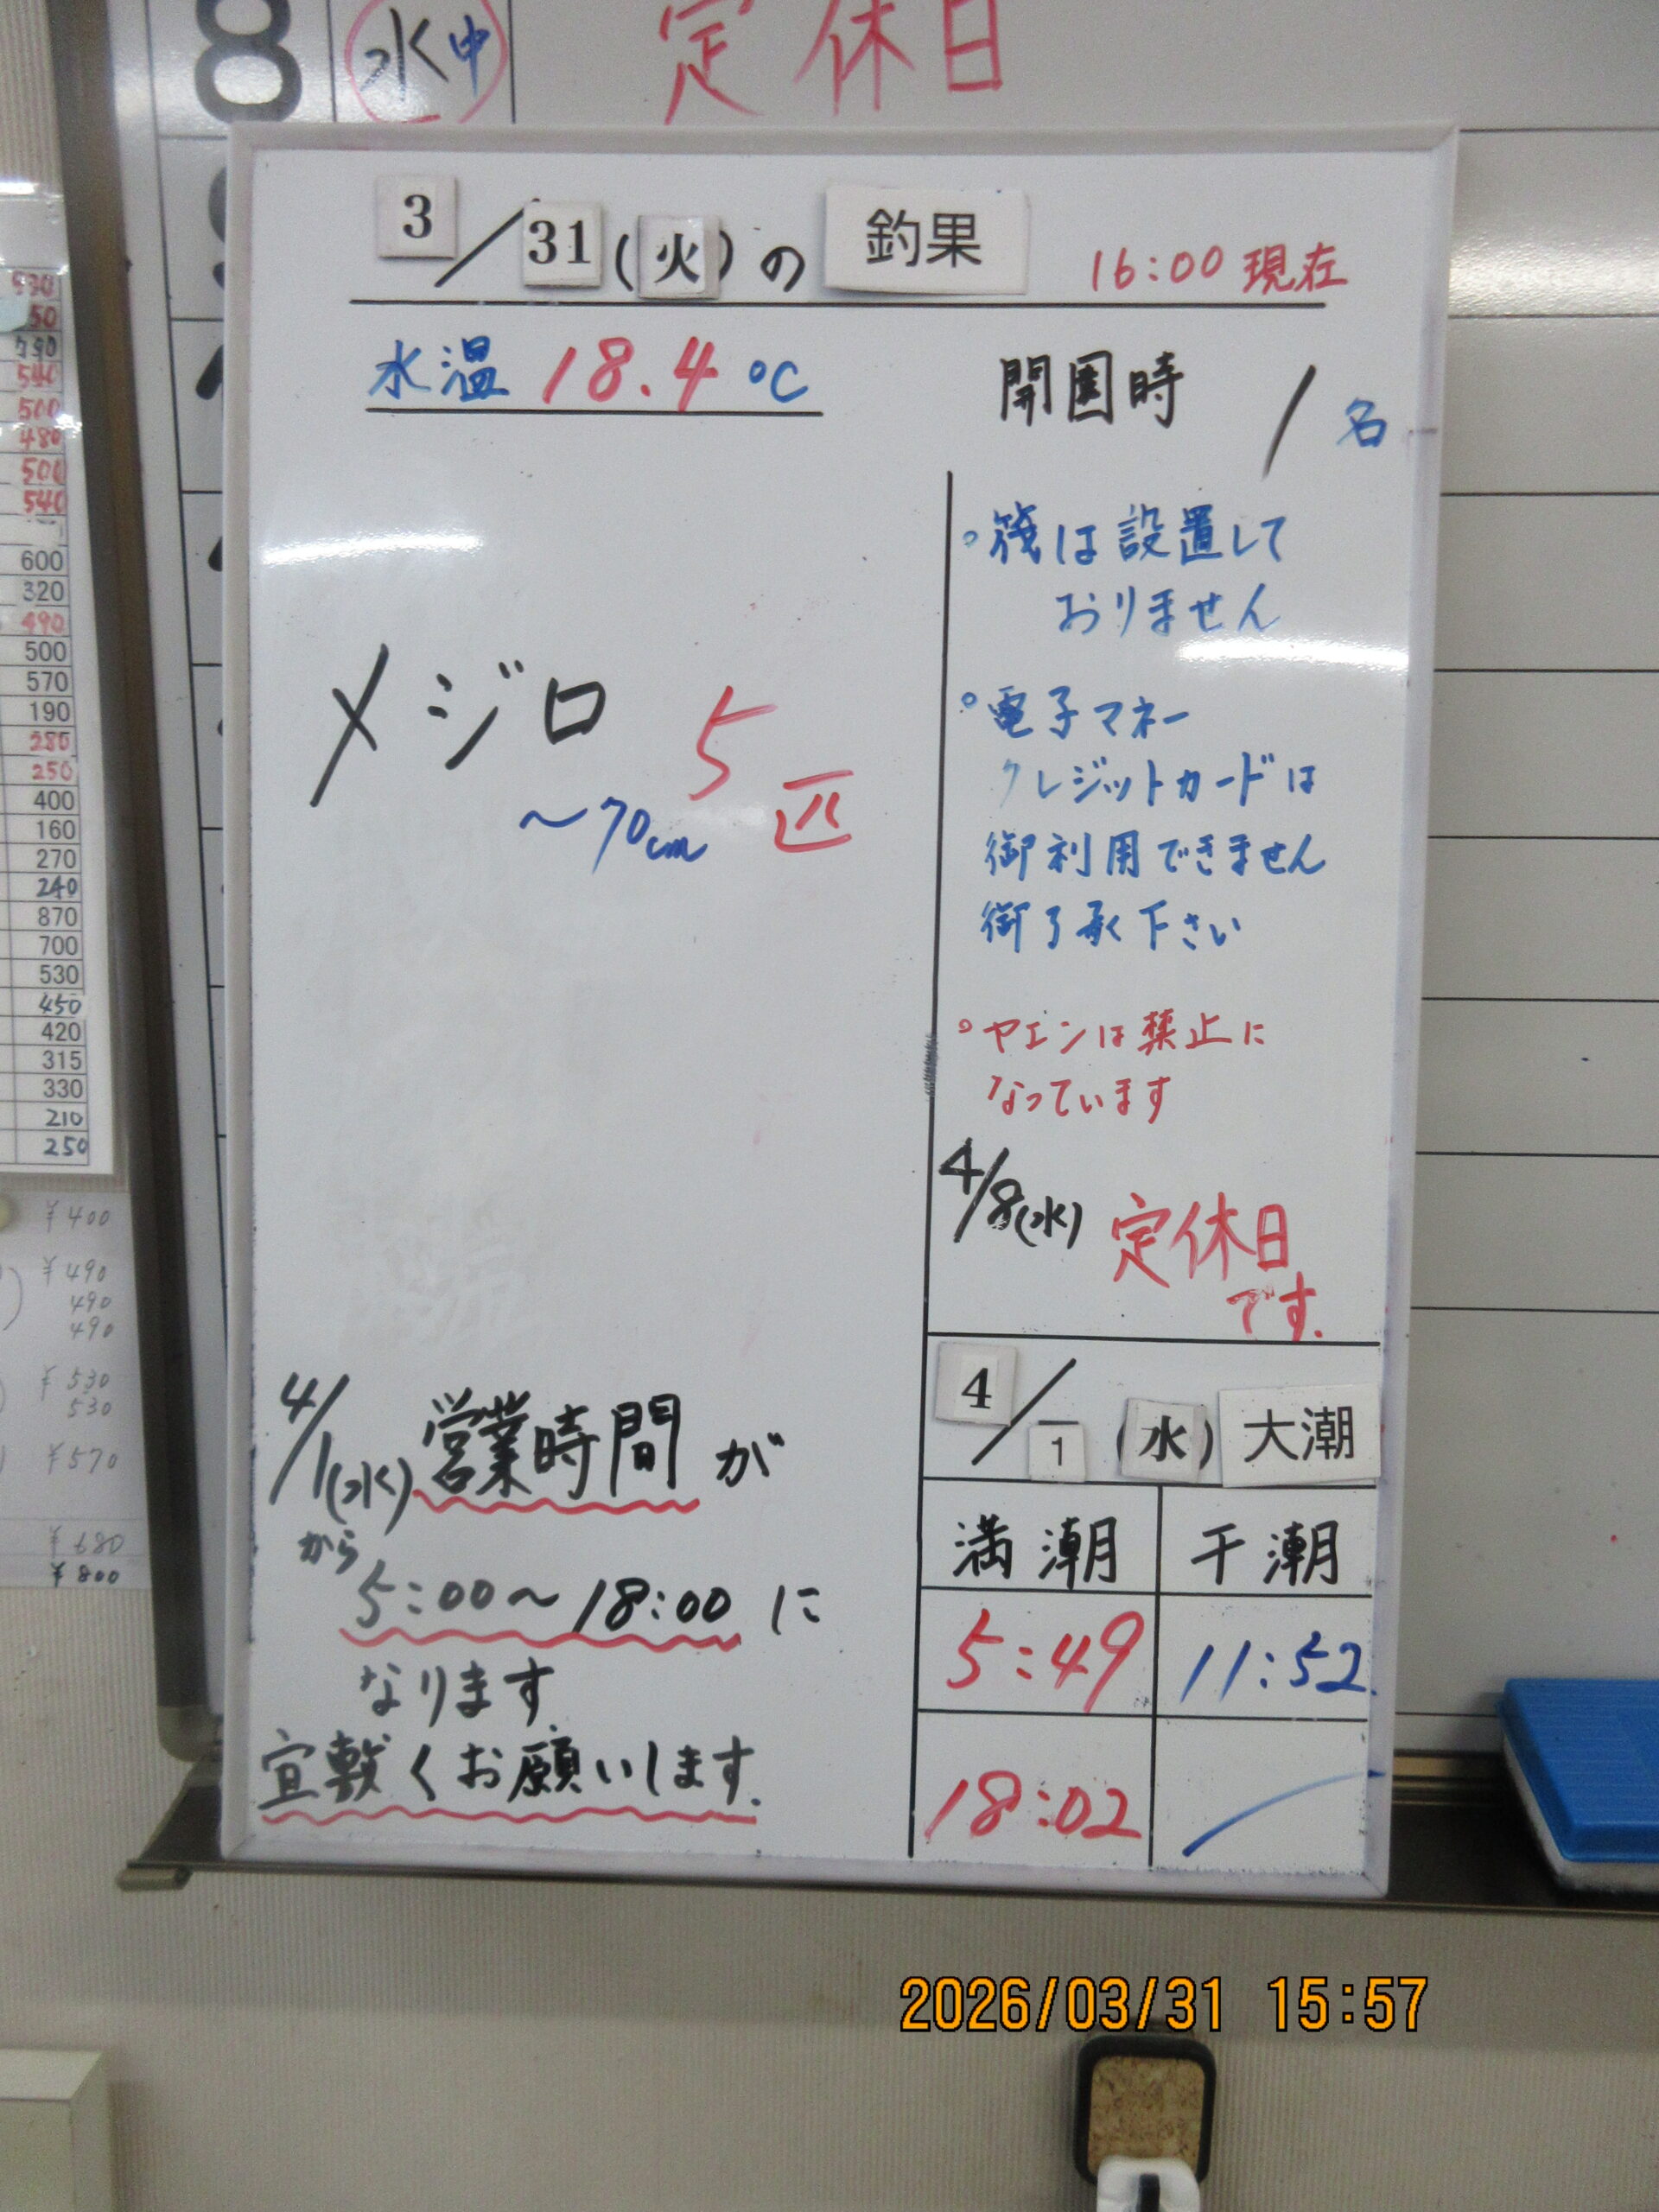 8 水 中 定休日
3/31(火)の 釣果 16:00 現在
水温 18.4 ℃
開園時 / 名
メジロ 5匹
~70cm
4/1(水) 営業時間が
から
5:00~18:00 に
なります
宜敷くお願いします.
。筏は設置して
おりません
。電子マネー
クレジットカードは
御利用できません
御了承下さい
。ヤエンは禁止に
なっています
4/8(水) 定休日
です.
4/1 (水) 大潮
満潮 干潮
5:49 11:52
18:02 /
530
50
790
540
500
480
500
540
600
320
490
500
570
190
280
250
400
160
270
240
870
700
530
450
420
315
330
210
250
¥400
¥490
490
490
¥530
530
¥570
¥680
¥800
2026/03/31 15:57